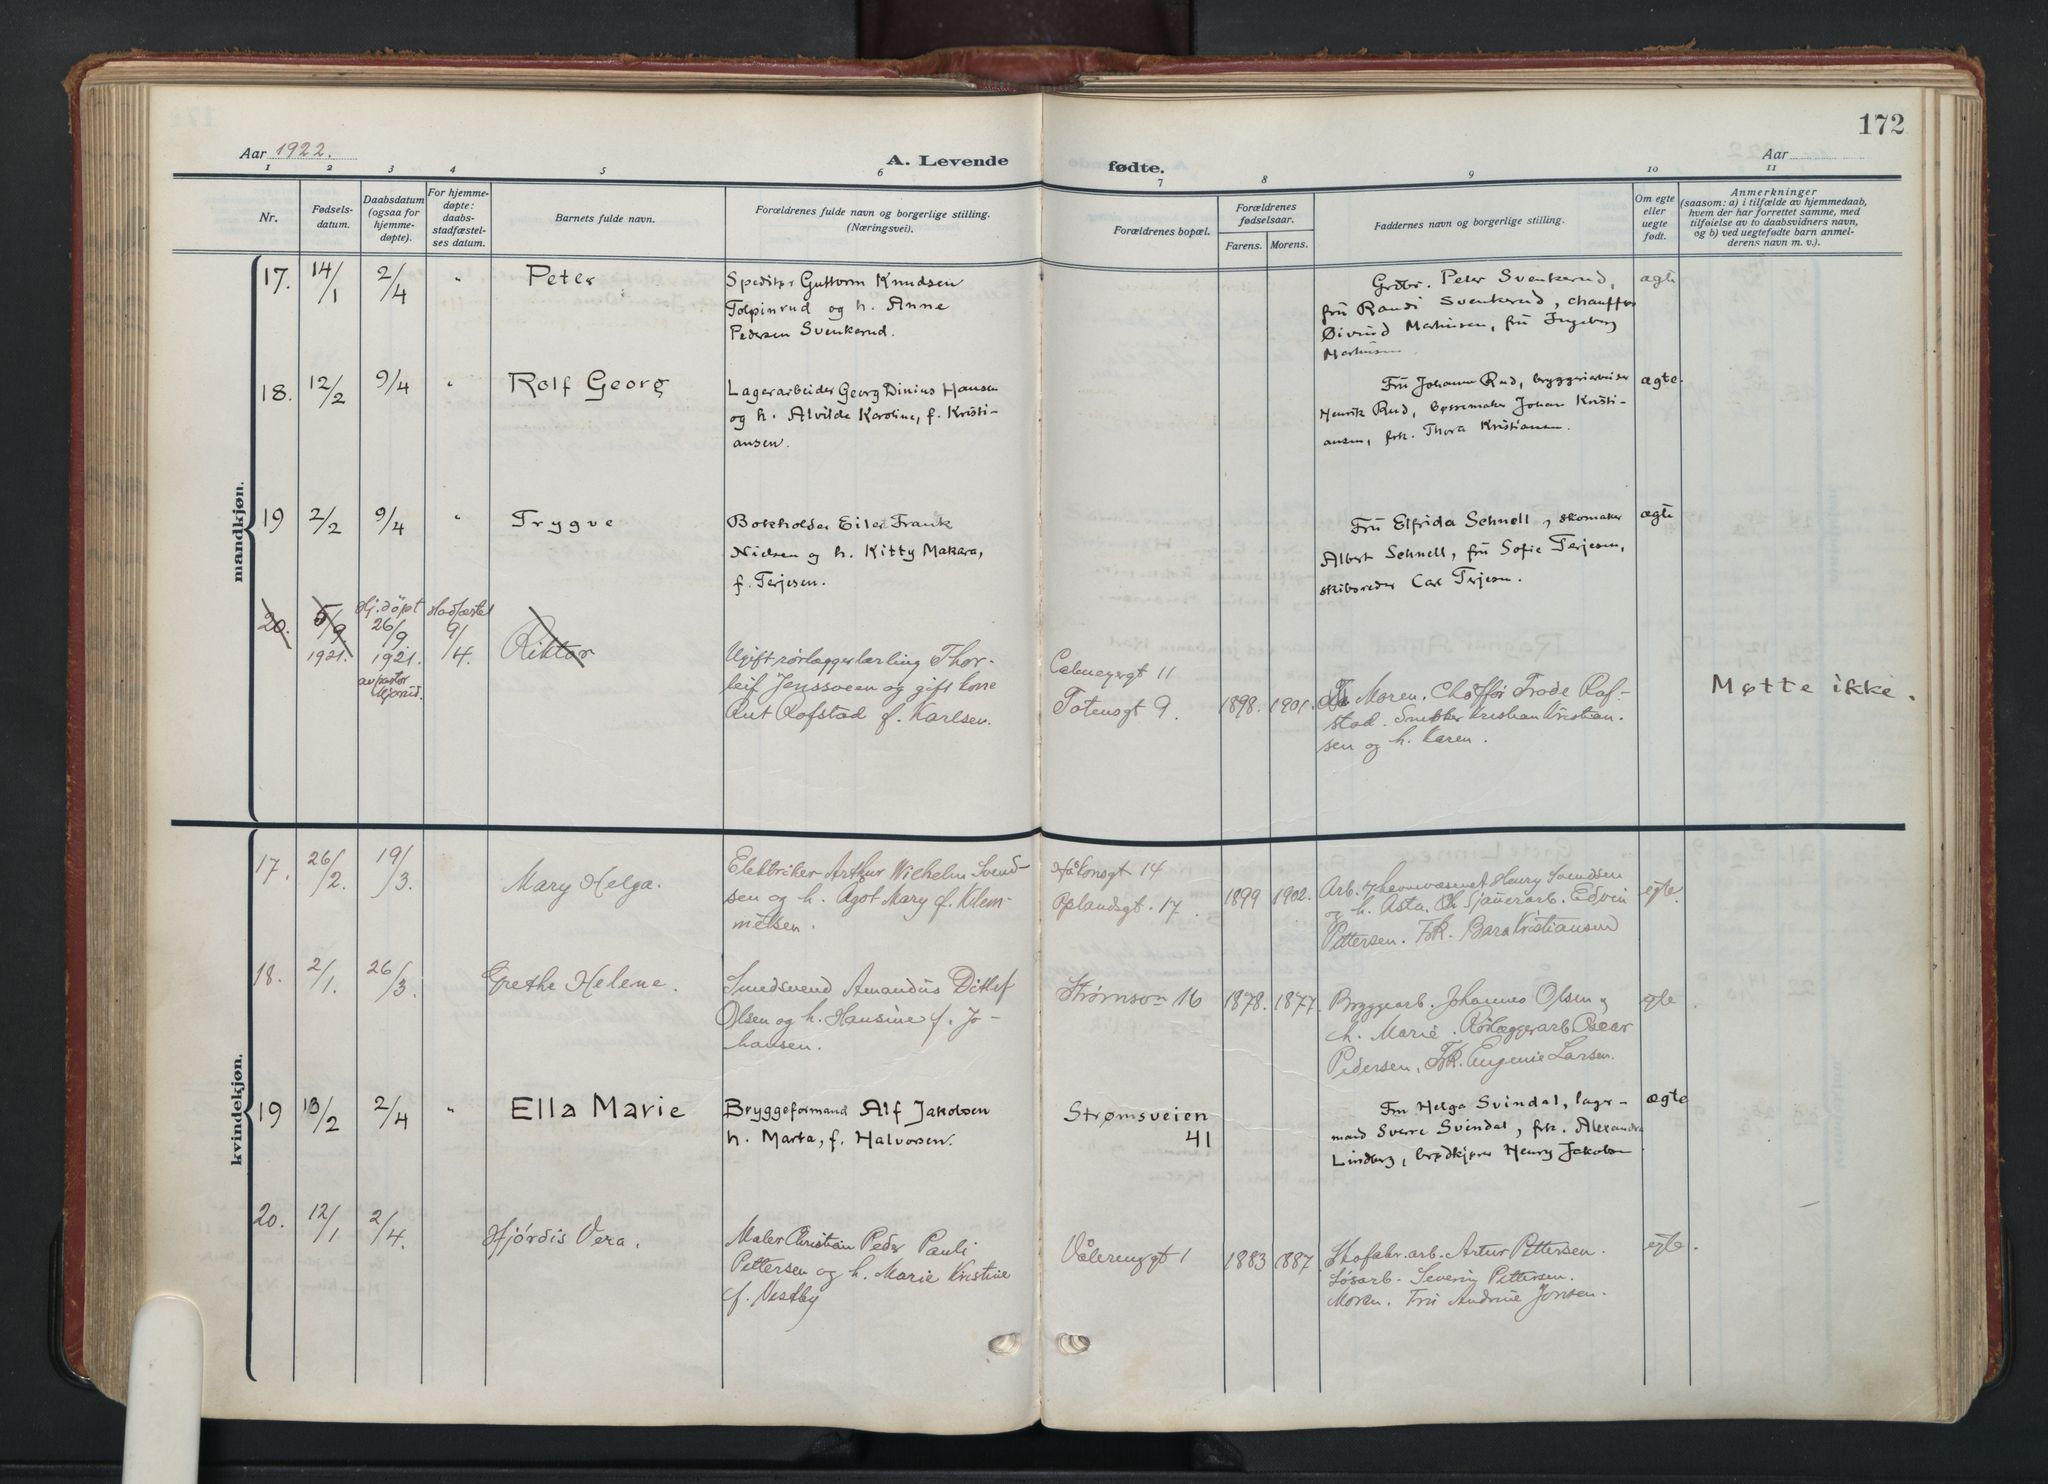 172
Aar 1922.
A. Levende
fødte.
Aar
1 2 3 4 5 6 7 8 9 10 11
Nr.
Fødsels-
datum.
Daabsdatum
(ogsaa for
hjemme-
døpte).
For hjemme-
døpte:
daabs-
stadfæstel-
ses datum.
Barnets fulde navn.
Forældrenes fulde navn og borgerlige stilling.
(Næringsvei).
Forældrenes bopæl.
Forældrenes
fødselsaar.
Farens. Morens.
Faddernes navn og borgerlige stilling.
Om egte
eller
uegte
født.
Anmerkninger
(saasom: a) i tilfælde av hjemmedaab,
hvem der har forrettet samme, med
tilføielse av to daabsvidners navn,
og b) ved uegtefødte barn anmel-
derens navn m. v.).
mandkjøn.
17. 14/1 2/4 " Peter
Speditør Guttorm Knudsen
Tolpinrud og h. Anne
Pedersen Svenkerud.
Grdbr. Peter Svenkerud,
fru Randi Svenkerud, chauffør
Øivind Marhusen, fru Ingeborg
Marhusen
ægte
18. 12/2 9/4 " Rolf Georg
Lagerarbeider Georg Dinius Hansen
og h. Alvilde Karoline, f. Kristi-
ansen.
Fru Johanne Rud, bryggeriarbeider
Henrik Rud, børsemaker Johan Kristi-
ansen, frk. Thora Kristiansen.
ægte.
19 2/2 9/4 " Trygve
Bokholder Eiler Frank
Nielsen og h. Kitty Makara,
f. Terjesen.
Fru Elfrida Schnell, skomaker
Albert Schnell, fru Sofie Terjesen,
skibsreder Carl Terjesen.
ægte
20. 5/9 1921. Hj. døpt 26/9 1921. av pastor stadfæstet 9/4.
Riktor
Ugift rørlæggerlærling Thor-
leif Jenssveen og gift kone
Rut Rofstad f. Karlsen.
Calmeyergt 11
Totensgt 9.
1898. 1901.
Moren. Chøffør Frode Rof-
stad. Snekker Kristian Kristian-
sen og h. Karen.
Møtte ikke.
kvindekjøn.
17. 26/2. 19/3. Mary Helga.
Elektriker Arthur Wilhelm Svend-
sen og h. Agot Mary f. Klem-
metsen.
Håkonsgt 14
Oplandsgt. 17.
1899 1902.
Arb. v. havnvæsenet Henry Svendsen
og h. Asta. Sjauerarb. Edvin
Pettersen. Frk. Bara Kristiansen
egte.
18. 2/1. 26/3. Grethe Helene.
Smedsvend Amandus Ditlef
Olsen og h. Hansine f. Jo-
hansen.
Strømsvn 16
1878. 1877.
Bryggearb. Johannes Olsen og
h. Marie. Rørlæggerarb Oscar
Pedersen, Frk. Eugenie Larsen.
egte.
19 13/2 2/4 " Ella Marie
Bryggeformand Alf Jakobsen
h. Marta, f. Halvorsen.
Strømsveien
41
Fru Helga Svindal, lager-
mand Sverre Svendal, frk. Alexandra
Lindberg, brødkjører Henry Jakobsen
ægte
20. 12/1 2/4. Hjördis Vera.
Maler Christian Peder Pauli
Pettersen og h. Marie Kristine
f. Nestby
Vålerenggt 1
1883 1887.
Skofabr.arb. Artur Pettersen.
Løsarb. Severin Pettersen.
Moren. Fru Andrine Jonsen.
egte.